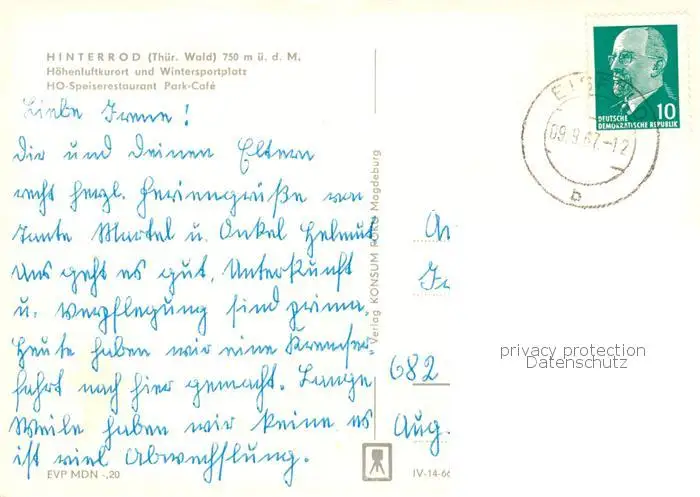 HINTERROD (Thür. Wald) 750 m ü. d. M.
Höhenluftkurort und Wintersportplatz
HO-Speiserestaurant Park-Café
Liebe Irene!
Dir und Deinen Eltern
recht herzl. Feriengrüße von
Tante Martel u. Onkel Helmut
Uns geht es gut, Unterkunft
u. Verpflegung sind prima.
Heute haben wir eine Kremser
fahrt nach hier gemacht. Lange
Weile haben wir keine es
ist viel Abwechslung.
EVP MDN -,20
Verlag KONSUM FOTO Magdeburg
IV-14-66
An
682
Aug.
DEUTSCHE
DEMOKRATISCHE REPUBLIK
10
09.9.67.-12
b
privacy protection
Datenschutz